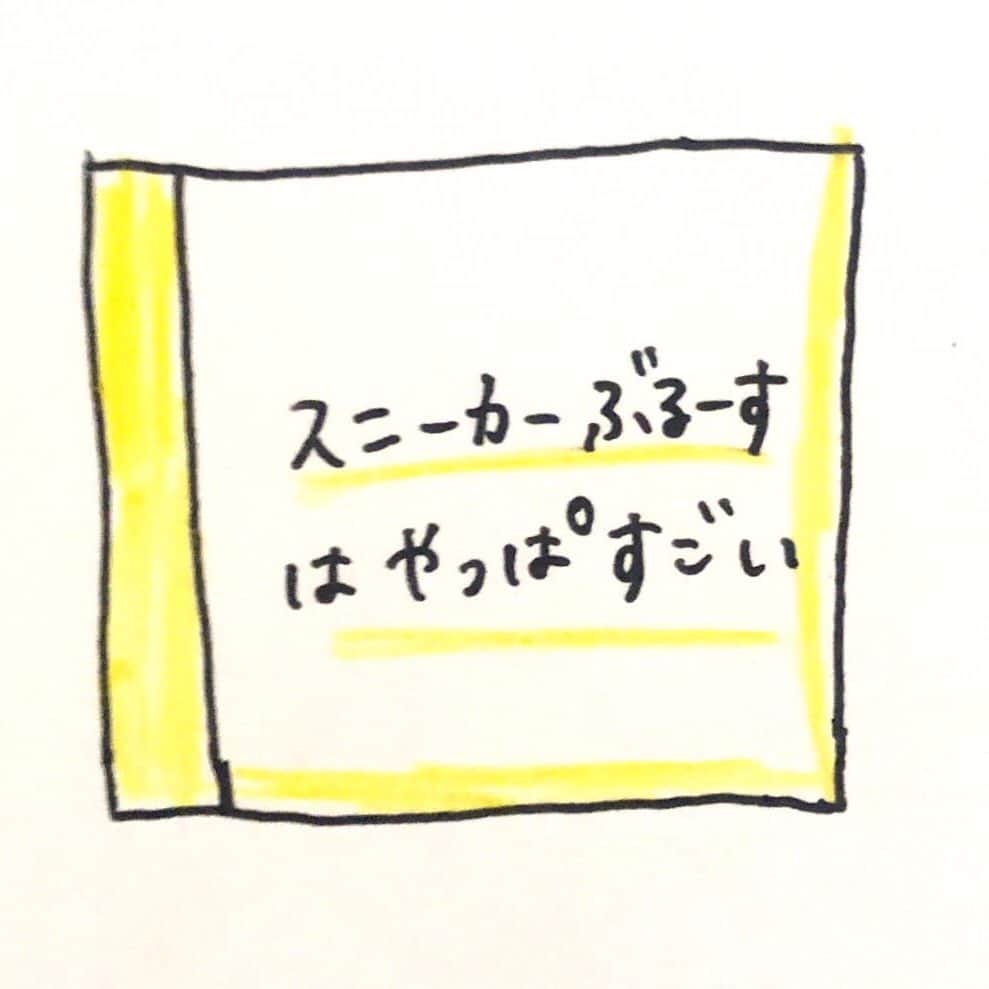 スニーカーぶるーす
はやっぱすごい